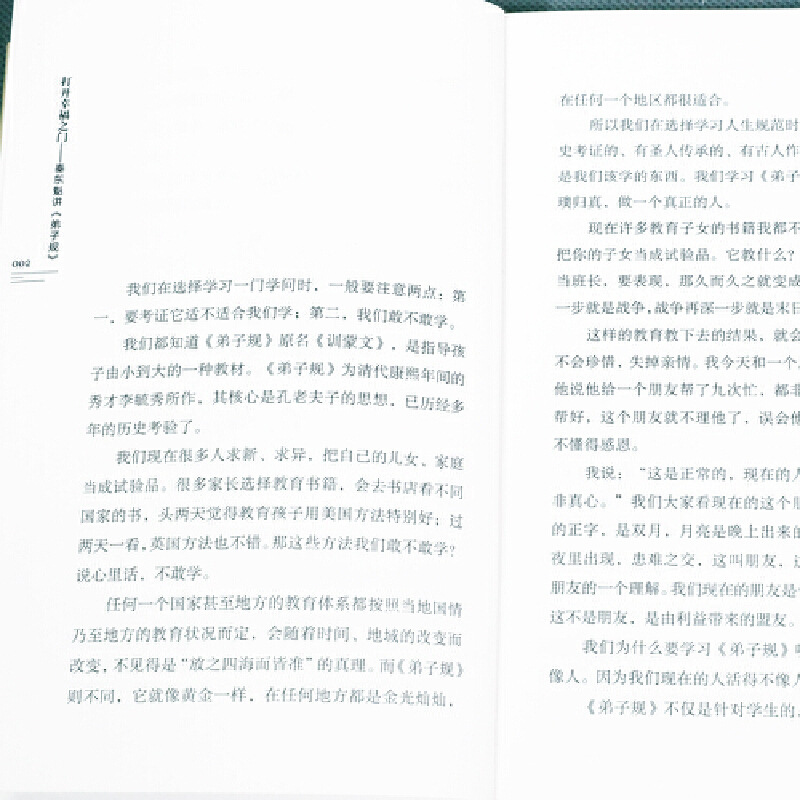 打开幸福之门——秦东魁讲《弟子规》
002
我们在选择学习一门学问时，一般要注意两点：第
一，要考证它适不适合我们学；第二，我们敢不敢学。
我们都知道《弟子规》原名《训蒙文》，是指导孩
子由小到大的一种教材。《弟子规》为清代康熙年间的
秀才李毓秀所作，其核心是孔老夫子的思想，已历经多
年的历史考验了。
我们现在很多人求新、求异，把自己的儿女、家庭
当成试验品。很多家长选择教育书籍，会去书店看不同
国家的书，头两天觉得教育孩子用美国方法特别好；过
两天一看，英国方法也不错。那这些方法我们敢不敢学？
说心里话，不敢学。
任何一个国家甚至地方的教育体系都按照当地国情
乃至地方的教育状况而定，会随着时间、地域的改变而
改变，不见得是“放之四海而皆准”的真理。而《弟子规》
则不同，它就像黄金一样，在任何地方都是金光灿灿，
在任何一个地区都很适合。
所以我们在选择学习人生规范时
史考证的、有圣人传承的、有古人作
是我们该学的东西。我们学习《弟子
璞归真，做一个真正的人。
现在许多教育子女的书籍我都不
把你的子女当成试验品。它教什么？
当班长，要表现，那久而久之就变成
一步就是战争，战争再深一步就是末日
这样的教育教下去的结果，就会
不会珍惜，失掉亲情。我今天和一个
他说他给一个朋友帮了九次忙，都非
帮好，这个朋友就不理他了，误会他
不懂得感恩。
我说：“这是正常的，现在的人
非真心。”我们大家看现在的这个朋
的正字，是双月，月亮是晚上出来的
夜里出现，患难之交，这叫朋友，这
朋友的一个理解。我们现在的朋友是
这不是朋友，是由利益带来的盟友。
我们为什么要学习《弟子规》
像人。因为我们现在的人活得不像人
《弟子规》不仅是针对学生的，